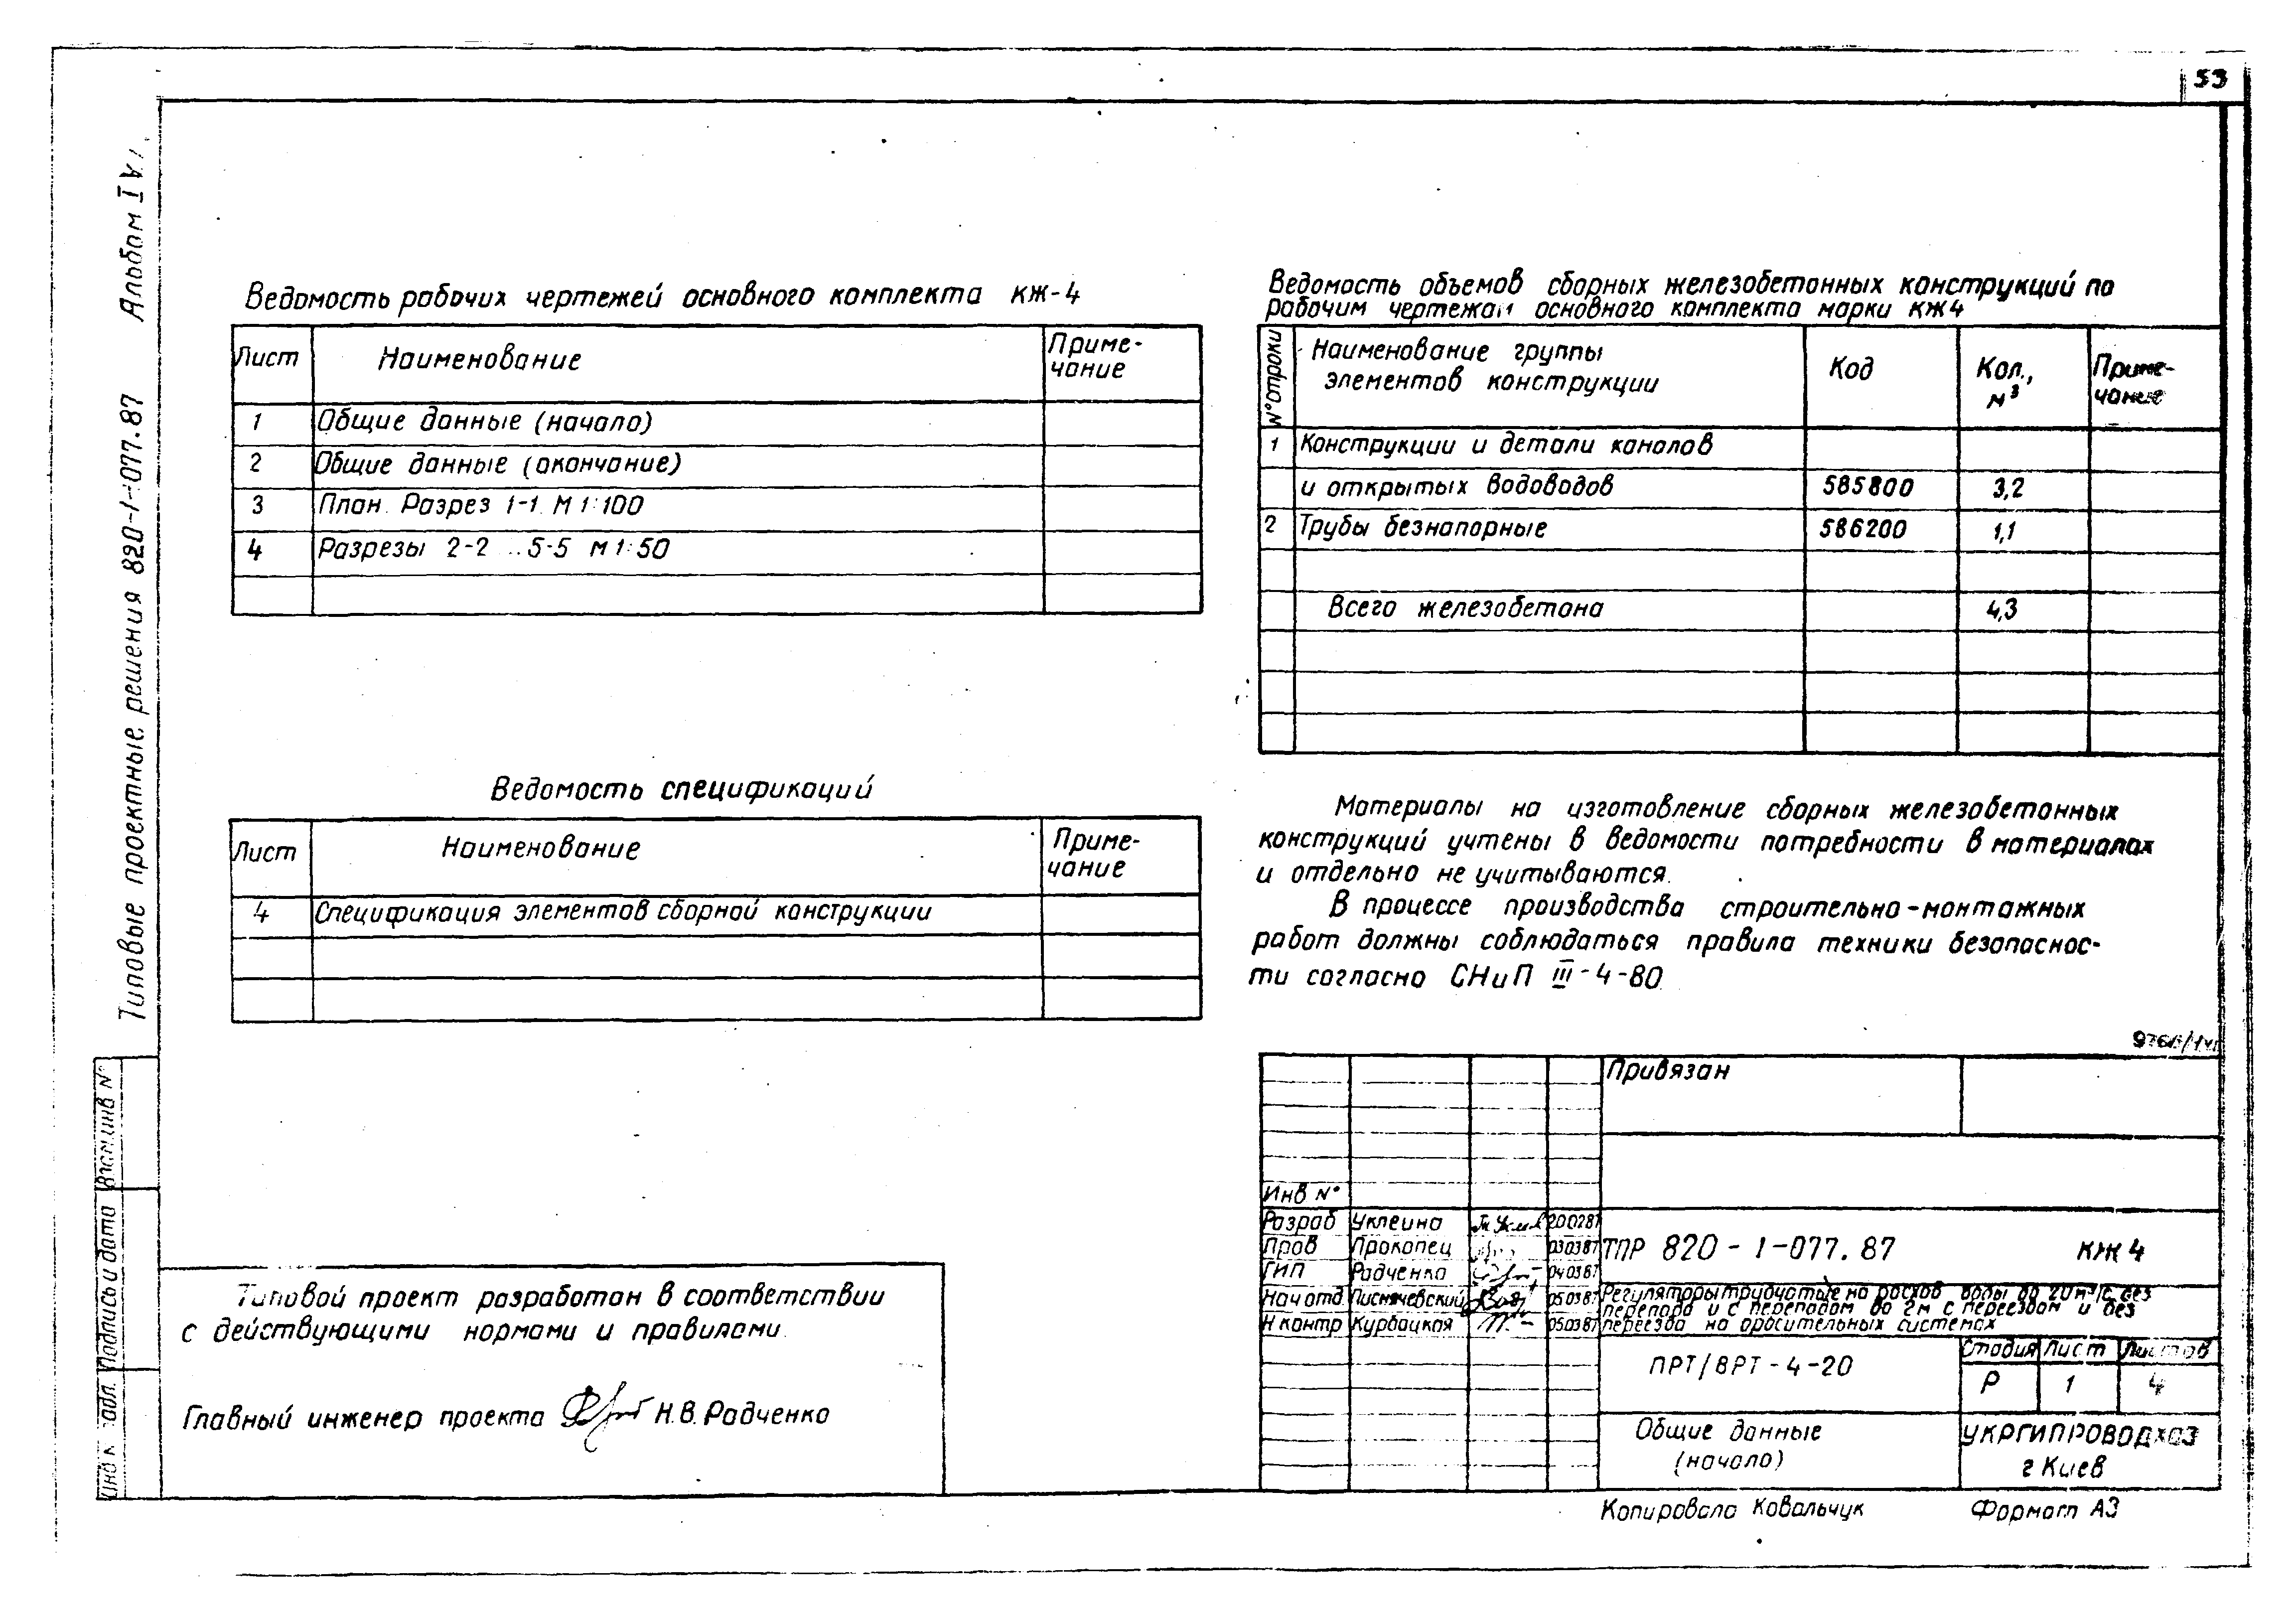 53
Типовые проектные решения 820-1-077.87 Альбом IV
Ведомость рабочих чертежей основного комплекта КЖ-4
Лист Наименование Приме-
чание
1 Общие данные (начало)
2 Общие данные (окончание)
3 План. Разрез 1-1. М 1:100
4 Разрезы 2-2 ...5-5 М 1:50
Ведомость спецификаций
Лист Наименование Приме-
чание
4 Спецификация элементов сборной конструкции
Ведомость объемов сборных железобетонных конструкций по
рабочим чертежам основного комплекта марки КЖ4
N° строки Наименование группы
элементов конструкции Код Кол.,
м³ Приме-
чание
1 Конструкции и детали каналов
и открытых водоводов 585800 3,2
2 Трубы безнапорные 586200 1,1
Всего железобетона 4,3
Материалы на изготовление сборных железобетонных
конструкций учтены в ведомости потребности в материалах
и отдельно не учитываются.
В процессе производства строительно-монтажных
работ должны соблюдаться правила техники безопаснос-
ти согласно СНиП III-4-80.
Типовой проект разработан в соответствии
с действующими нормами и правилами.
Главный инженер проекта Н.В. Радченко
Взам.инв N°
Подпись и дата
Привязан
Инв N°
Разраб Уклеина 200287
Пров Прокопец 030387
ГИП Радченко 040387
Нач отд Писмячевский 050387
Н контр Курбацкая 050387
ТПР 820-1-077.87 КЖ4
Регуляторы трубчатые на расход воды до 20 м³/с без
перепада и с перепадом до 2м с переездом и без
переезда на оросительных системах
ПРТ/ВРТ-4-20
Стадия Лист Листов
Р 1 4
Общие данные
(начало)
УКРГИПРОВОДХОЗ
г Киев
Копировала Ковальчук Формат А3